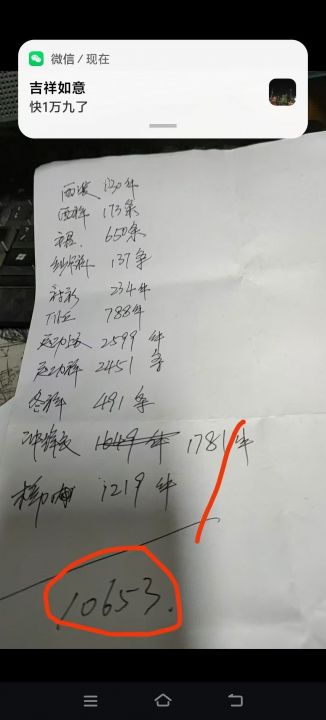 微信 / 现在
吉祥如意
快1万九了
西装 130件
西裤 173条
650条
137条
衬衫 234件
T恤 788件
运动衣 2599件
运动裤 2451条
冬裤 491条
冲锋衣 1649件 1781件
1219件
10653.